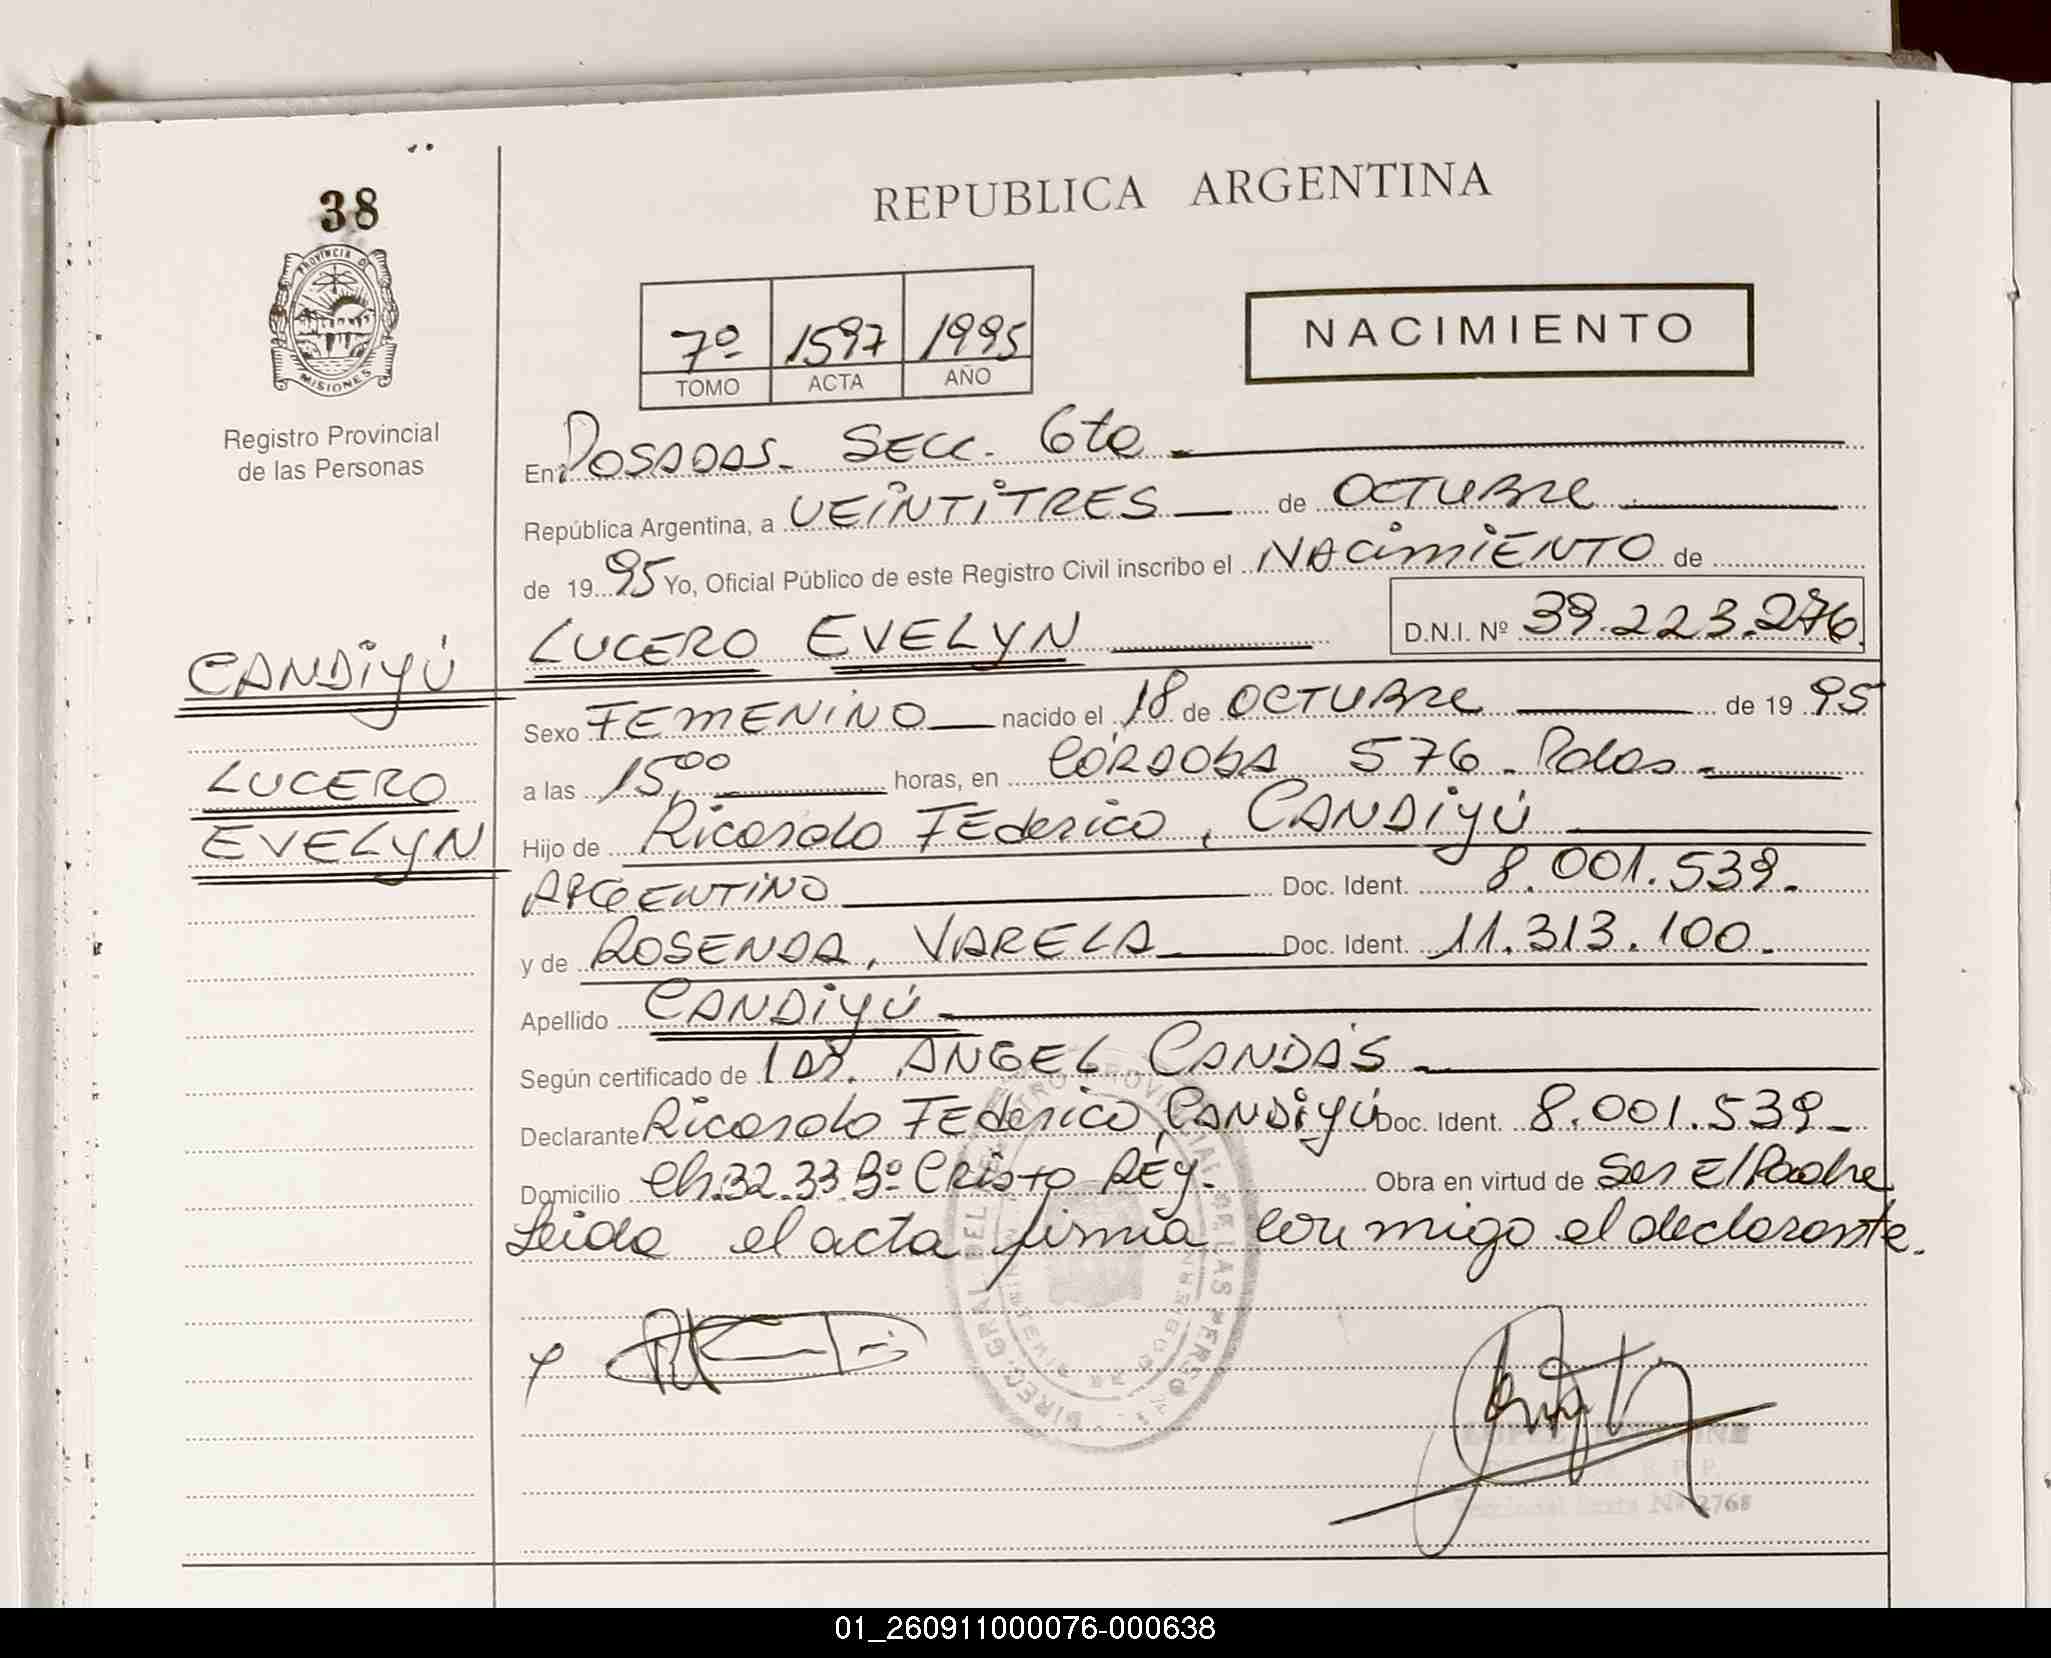 38
PROVINCIA D
MISIONES
Registro Provincial
de las Personas
REPUBLICA ARGENTINA
7º 1597 1995
TOMO ACTA AÑO
NACIMIENTO
En POSADAS. SECC. 6ta
República Argentina, a VEINTITRES de OCTUBRE
de 19 95 Yo, Oficial Público de este Registro Civil inscribo el NACIMIENTO de
LUCERO EVELYN D.N.I. Nº 39.223.276
CANDIYÚ
LUCERO
EVELYN
Sexo FEMENINO nacido el 18 de OCTUBRE de 19 95
a las 15,00 horas, en CÓRDOBA 576. Pdas.
Hijo de Ricardo FEderico, CANDIYÚ
ARGENTINO Doc. Ident. 8.001.539.
y de ROSENDA, VARELA Doc. Ident. 11.313.100.
Apellido CANDIYÚ
Según certificado de Dr. ANGEL CANDAS
Declarante Ricardo FEderico, CANDIYÚ Doc. Ident. 8.001.539
Domicilio Ch. 32.33 Bº Cristo REy. Obra en virtud de Ser El Padre
Leida el acta firma conmigo el declarante.
DIREC. GRAL. DEL REGISTRO PROVINCIAL DE LAS PERSONAS
Nº 2768
01_260911000076-000638